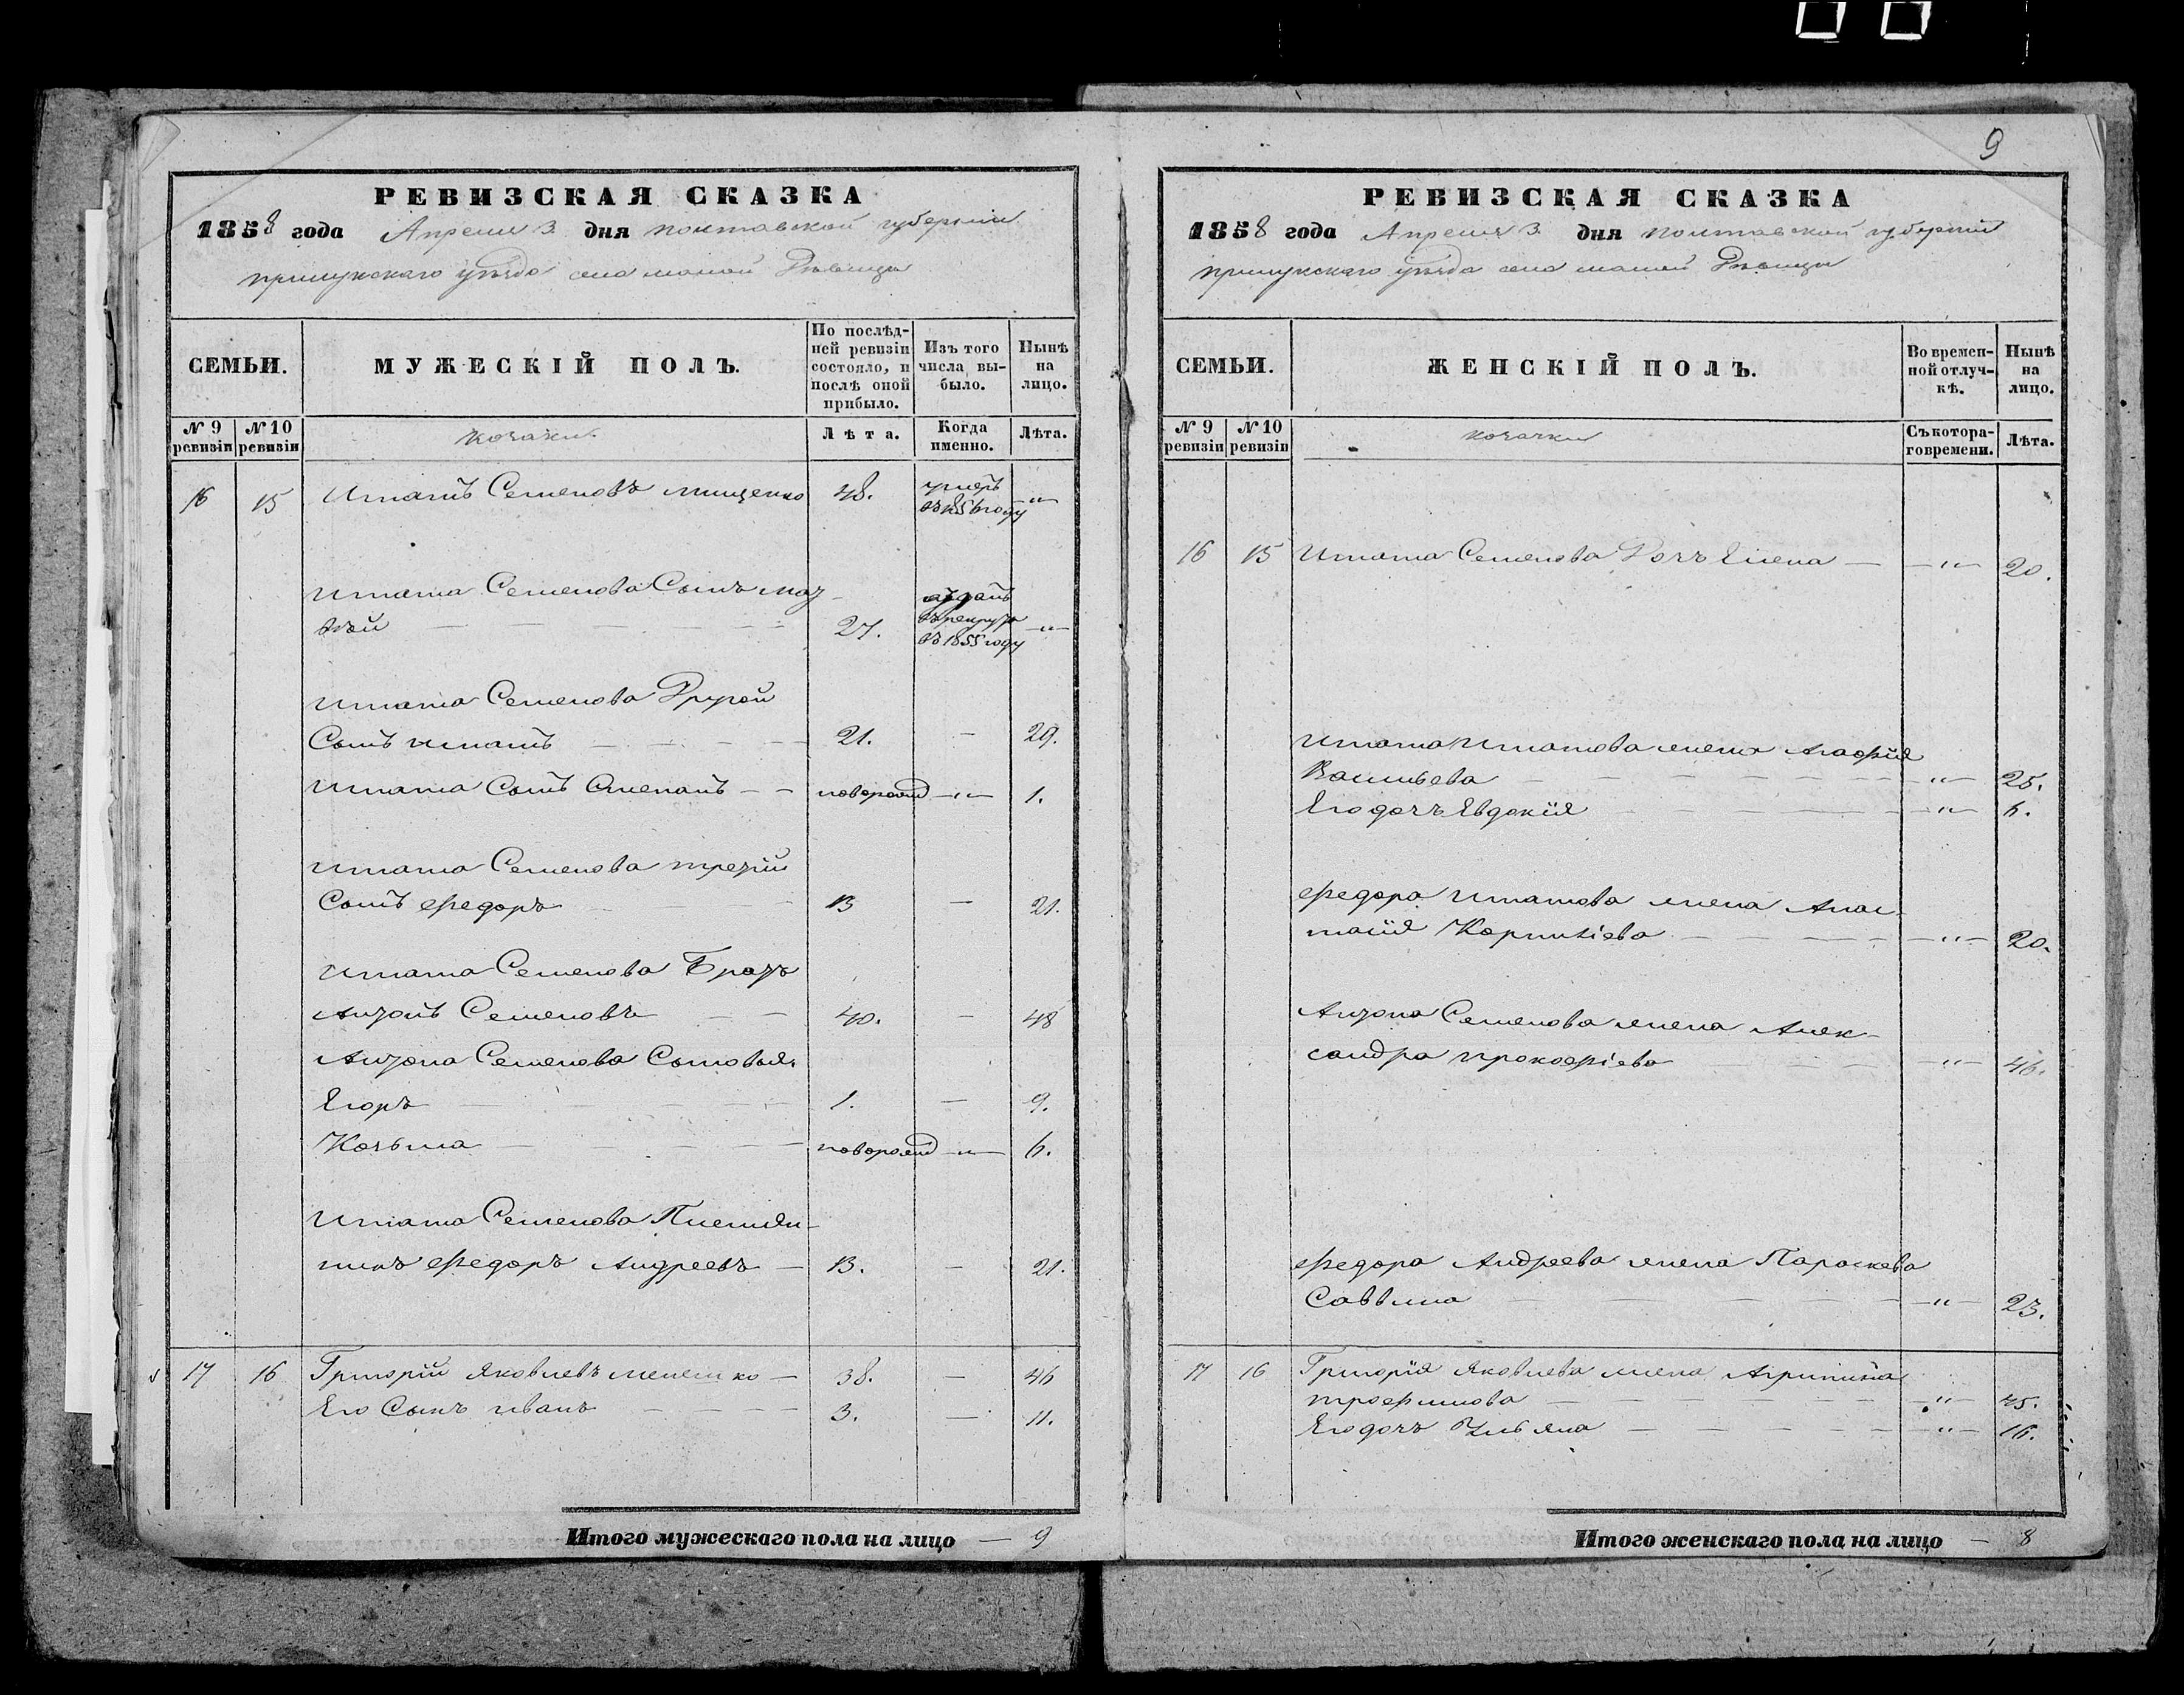 9
РЕВИЗСКАЯ СКАЗКА
1858 года Апреля 3 дня полтавской губернии
прилукскаго уѣзда села малой Дѣвицы
СЕМЬИ.
МУЖЕСКІЙ ПОЛЪ.
По послѣд-
ней ревизіи
состояло, и
послѣ оной
прибыло.
Изъ того
числа вы-
было.
Нынѣ
на
лицо.
№ 9
ревизіи
№ 10
ревизіи
козаки.
Лѣта.
Когда
именно.
Лѣта.
16 15 Игнатъ Семеновъ мищенко 48. умеръ
въ году "
Игната Семенова Сынъ мат-
вѣй 27. отданъ
въ рекруты
въ 1855 году "
Игната Семенова Другой
Сынъ игнатъ 21. — 29.
Игната Сынъ Степанъ новорожд — " — 1.
Игната Семенова третій
Сынъ федоръ 13 — 21.
Игната Семенова Братъ
Антонъ Семеновъ 40. — 48
Антона Семенова Сыновья.
Егоръ 1. — 9.
Козьма новорожд — " — 6.
Игната Семенова Племян-
никъ федоръ Андреевъ — 13. — 21.
17 16 Григорій Яковлевъ — 38. — 46
Его Сынъ иванъ 3. — 11.
Итого мужескаго пола на лицо — 9
РЕВИЗСКАЯ СКАЗКА
1858 года Апреля 3 дня полтавской губерніи
прилукскаго уѣзда села малой Дѣвицы
СЕМЬИ.
ЖЕНСКІЙ ПОЛЪ.
Во времен-
ной отлуч-
кѣ.
Нынѣ
на
лицо.
№ 9
ревизіи
№ 10
ревизіи
козачки
Съ котора-
го времени.
Лѣта.
16 15 Игната Семенова Дочь Елена — — " — 20.
Игната Игнатова жена Агафія
Васильева — " — 25.
Его дочь Евдокія — " — 6.
федора Игнатова жена Анас-
тасія Корниліева — " — 20.
Антона Семенова жена Алек-
сандра прокофіева — " — 46.
федора Андреева жена Параскева
Саввина — " — 23.
17 16 Григорія Яковлева жена Агрипина
трофимова — " — 45.
Его дочь Ульяна — " — 16.
Итого женскаго пола на лицо — 8